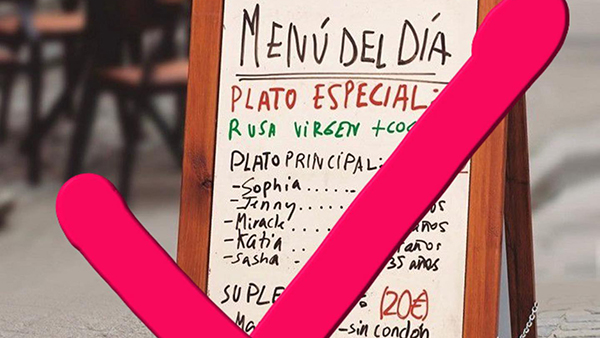 MENÚ DEL DÍA
PLATO ESPECIAL:
RUSA VIRGEN +
PLATO PRINCIPAL:
-Sophia.....
-Jenny.....
-Miracle.. años
-Katia años
-Sasha 35 años
(20€)
-sin condon